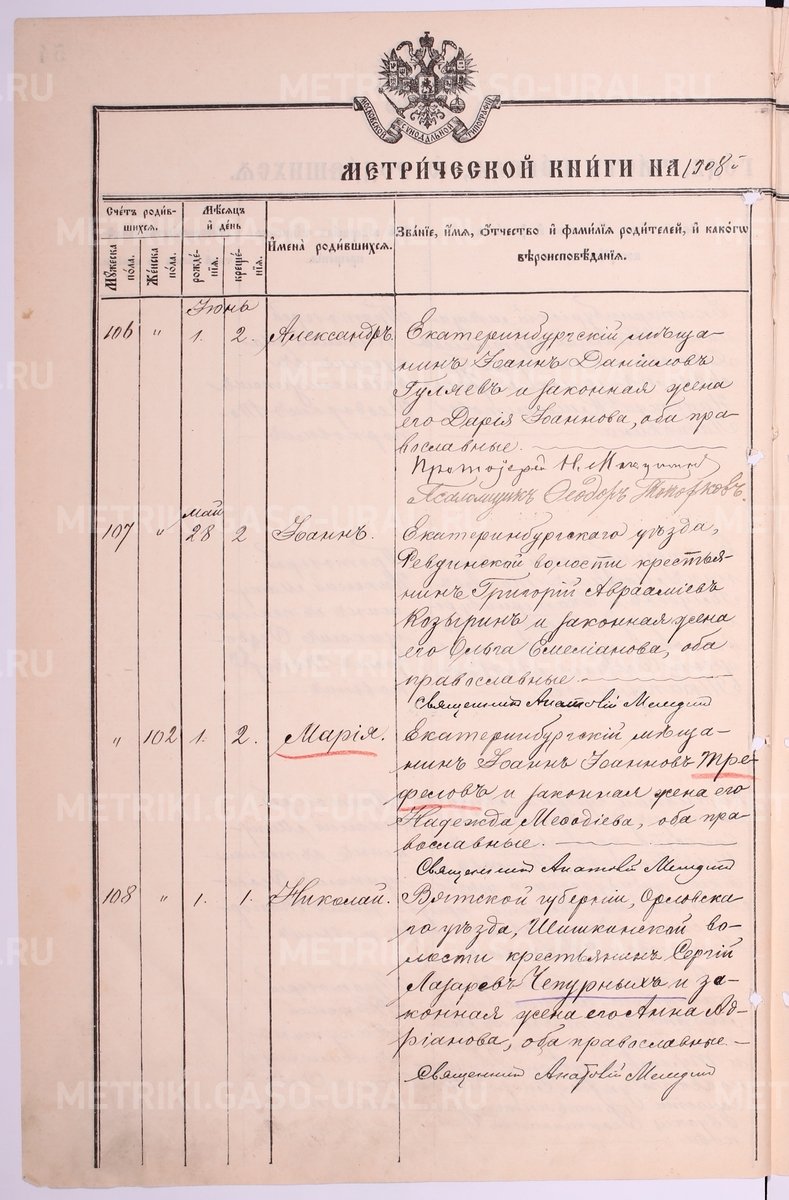 МОСКОВСКОЙ СѴНОДАЛЬНОЙ ТИПОГРАФІИ
МЕТРИ́ЧЕСКОЙ КНИ́ГИ НА 1908 г.
Сче́тъ роди́в-
шихся.
Мꙋжеска
по́ла.
Же́нска
по́ла.
Мѣ́сяцъ
и҆ де́нь
рожде́-
нїя.
креще́-
нїя.
И҆мена̀ роди́вшихся.
Зва́нїе, и҆́мя, ѻ҆́тчество и҆ фами́лїя роди́телей, и҆ како́гѡ
вѣроисповѣ́данїя.
Іюнь
106 " 1. 2. Александръ.
Екатеринбургскій мѣща-
нинъ Іоаннъ Даніиловъ
Гуляевъ и законная жена
его Дарія Іоаннова, оба пра-
вославные.
Протоіерей Н.
Псаломщикъ Ѳеодоръ Топорковъ.
май
107 " 28 2 Іоаннъ.
Екатеринбургскаго уѣзда,
Ревдинской волости крестья-
нинъ Григорій Авраамїевъ
Козыринъ и законная жена
его Ольга Емеліанова, оба
православные
Священникъ Анатолій
" 102 1. 2. Марія.
Екатеринбургскій мѣща-
нинъ Іоаннъ Іоанновъ Тре-
феловъ и законная жена его
Надежда Меѳодіева, оба пра-
вославные.
Священникъ Анатолій
108 " 1. 1. Николай.
Вятской губерніи, Орловска-
го уѣзда, Шишкинской во-
лости крестьянинъ Сергій
Лазаревъ Чепурныхъ и за-
конная жена его Анна Ад-
ріанова, оба православные
Священникъ Анатолій
METRIKI.GASO-URAL.RU